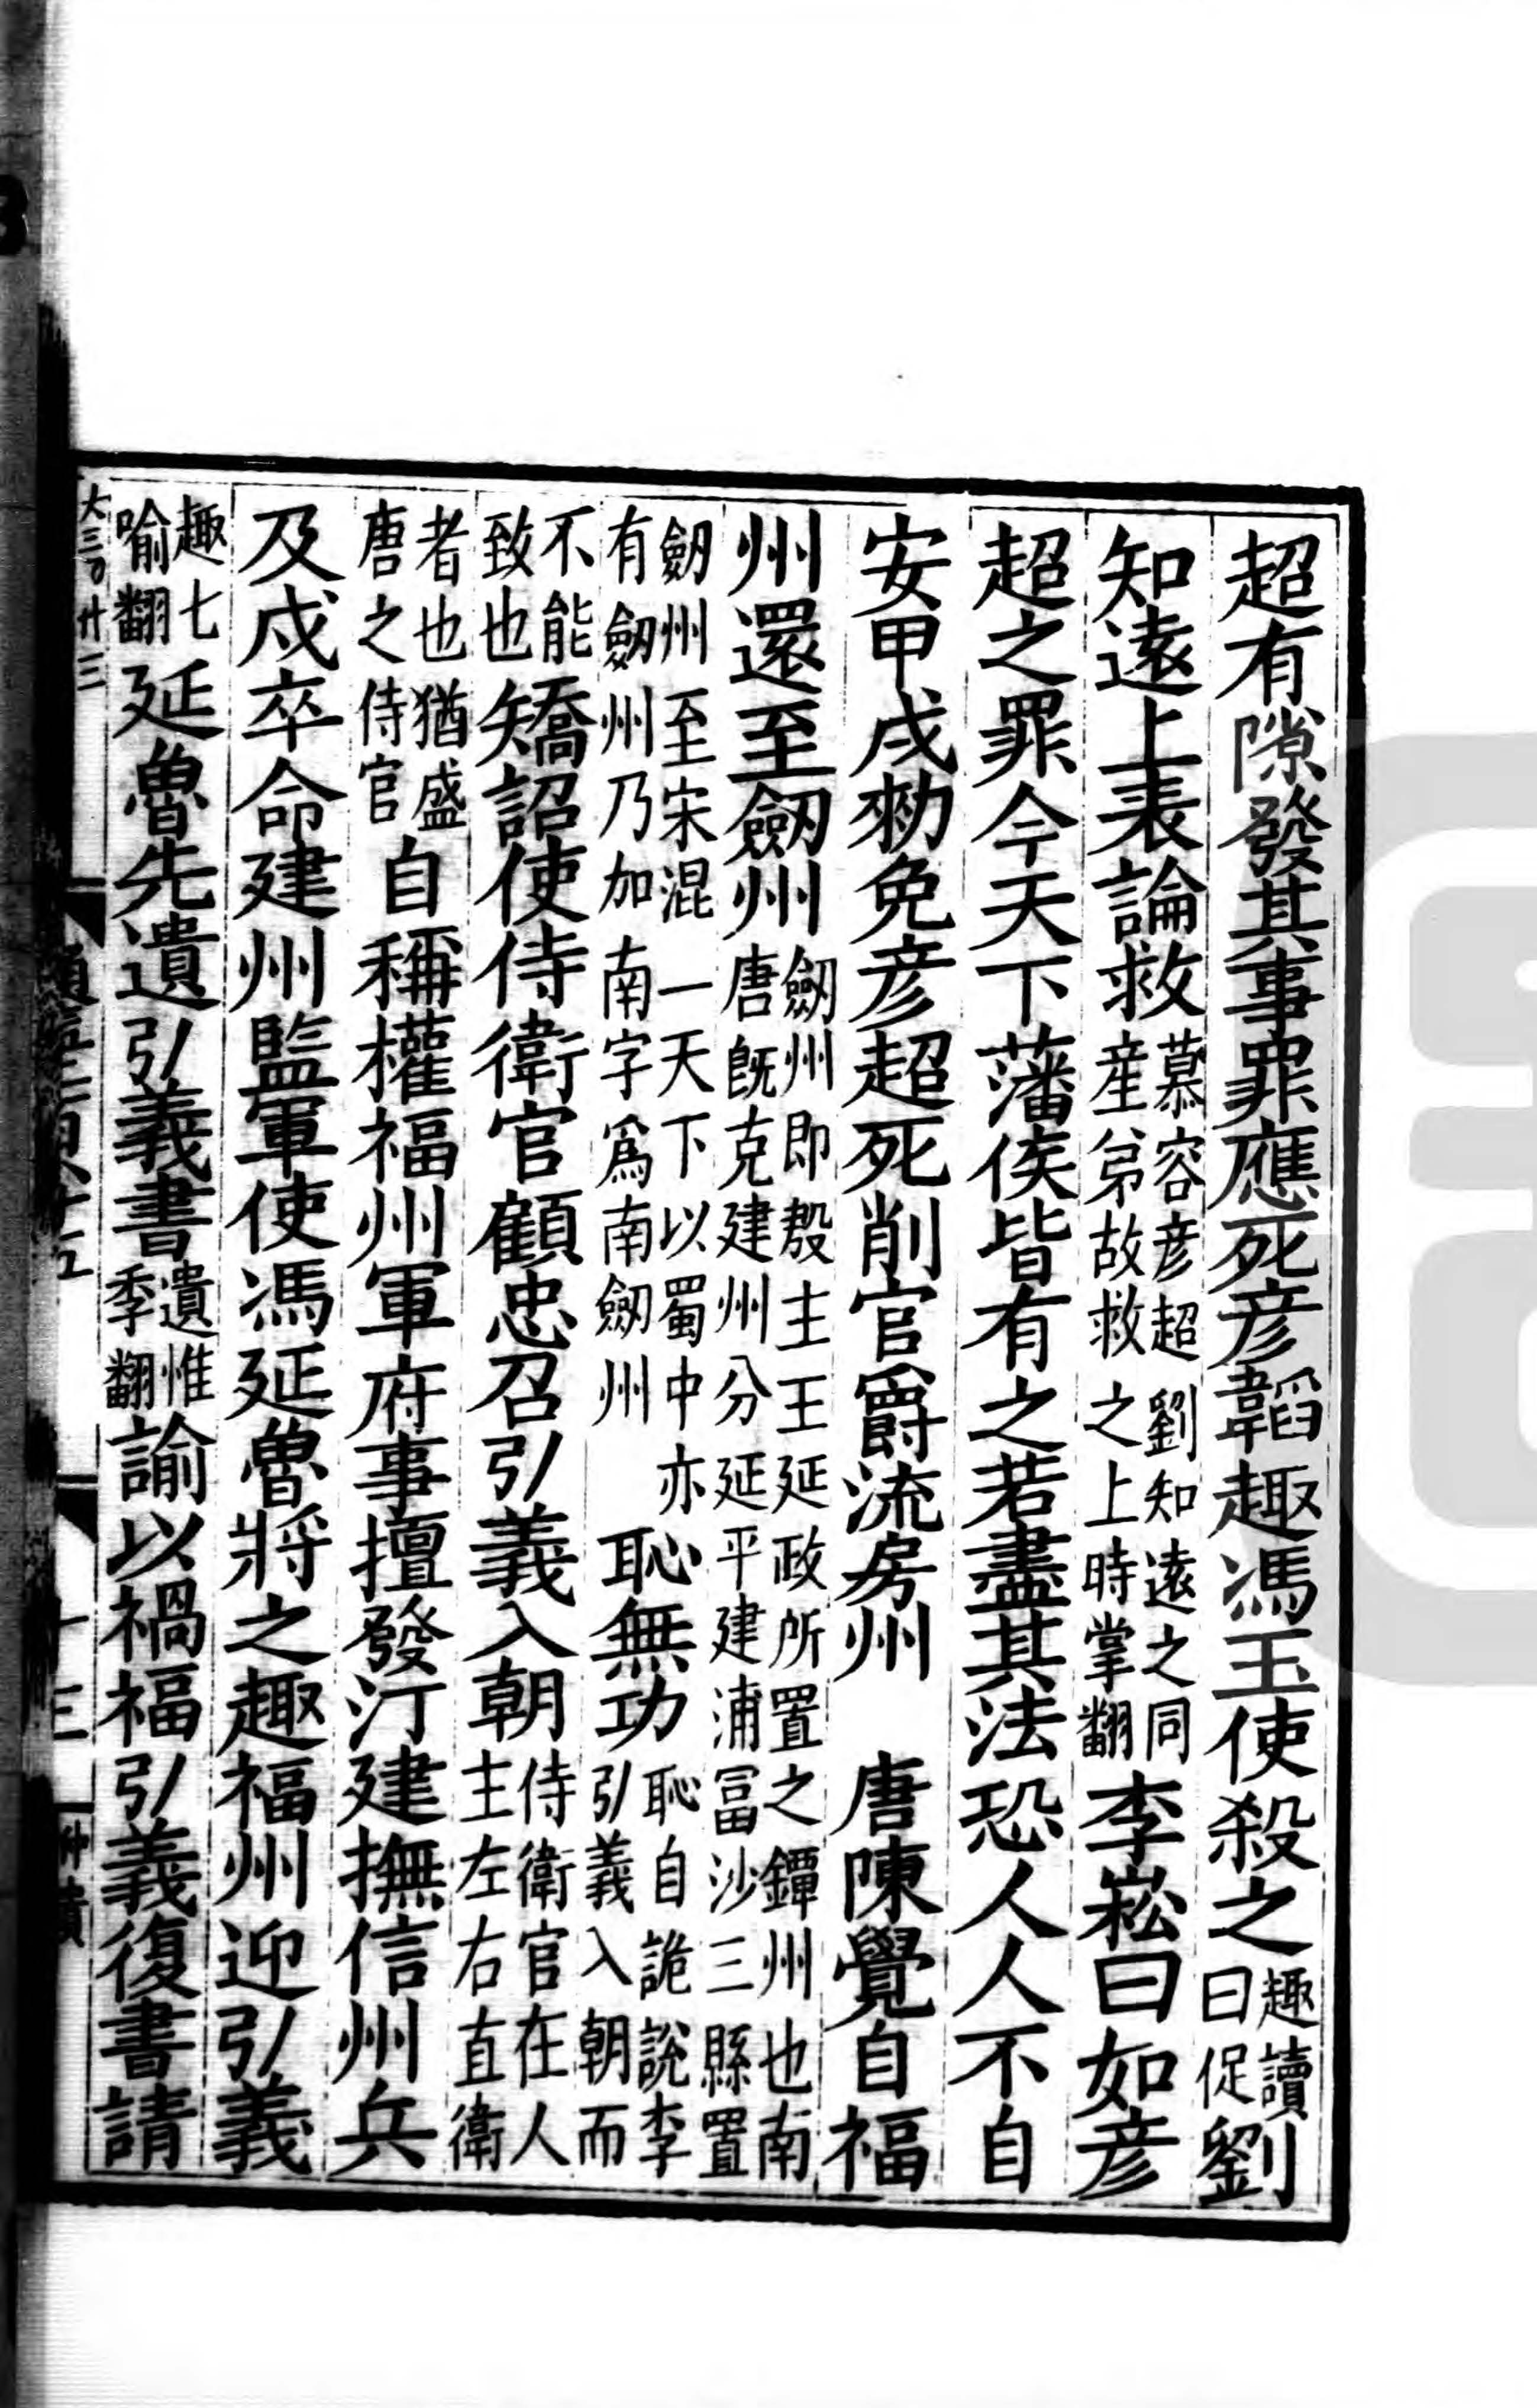 超有隙發其事罪應死彦韜趣馮玉使殺之趣讀曰促劉
知遠上表論救慕容彦超劉知遠之同産弟故救之上時掌翻李崧曰如彦
超之罪今天下藩侯皆有之若盡其法恐人人不自
安甲戌勑免彦超死削官爵流房州　唐陳覺自福
州還至劒州劒州即殷主王延政所置之鐔州也南唐旣克建州分延平建浦富沙三縣置
劒州至宋混一天下以蜀中亦有劒州乃加南字爲南劒州恥無功恥自詭說李弘義入朝而
不能致也矯詔使侍衛官顧忠召弘義入朝侍衛官在人主左右直衛
者也猶盛唐之侍官自稱權福州軍府事擅發汀建撫信州兵
及戍卒命建州監軍使馮延魯將之趣福州迎弘義
趣七喻翻延魯先遺弘義書遺惟季翻諭以禍福弘義復書請